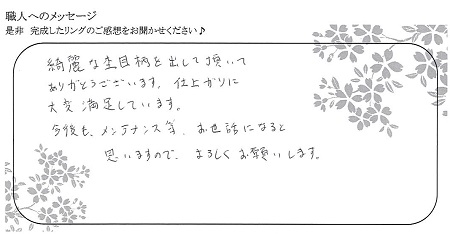 職人へのメッセージ
是非 完成したリングのご感想をお聞かせください♪
綺麗な杢目柄を出して頂いて
ありがとうございます。仕上がりに
大変満足しています。
今後も、メンテナンス等、お世話になると
思いますので、よろしくお願いします。